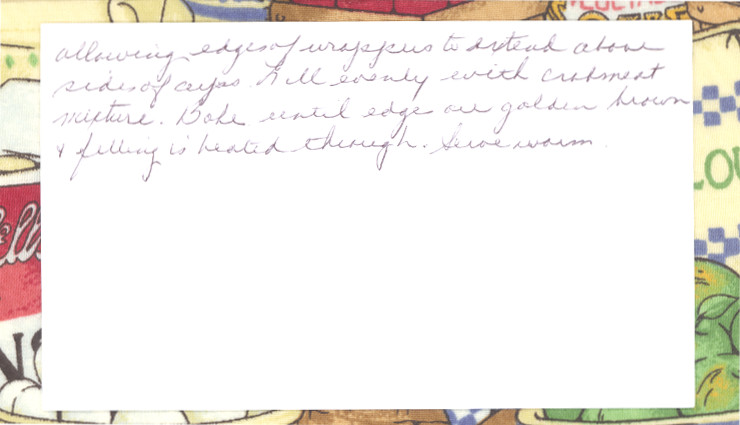 allowing edges of wrappers to extend above
sides of cups. Fill evenly with crabmeat
mixture. Bake until edge are golden brown
& filling is heated through. Serve warm.